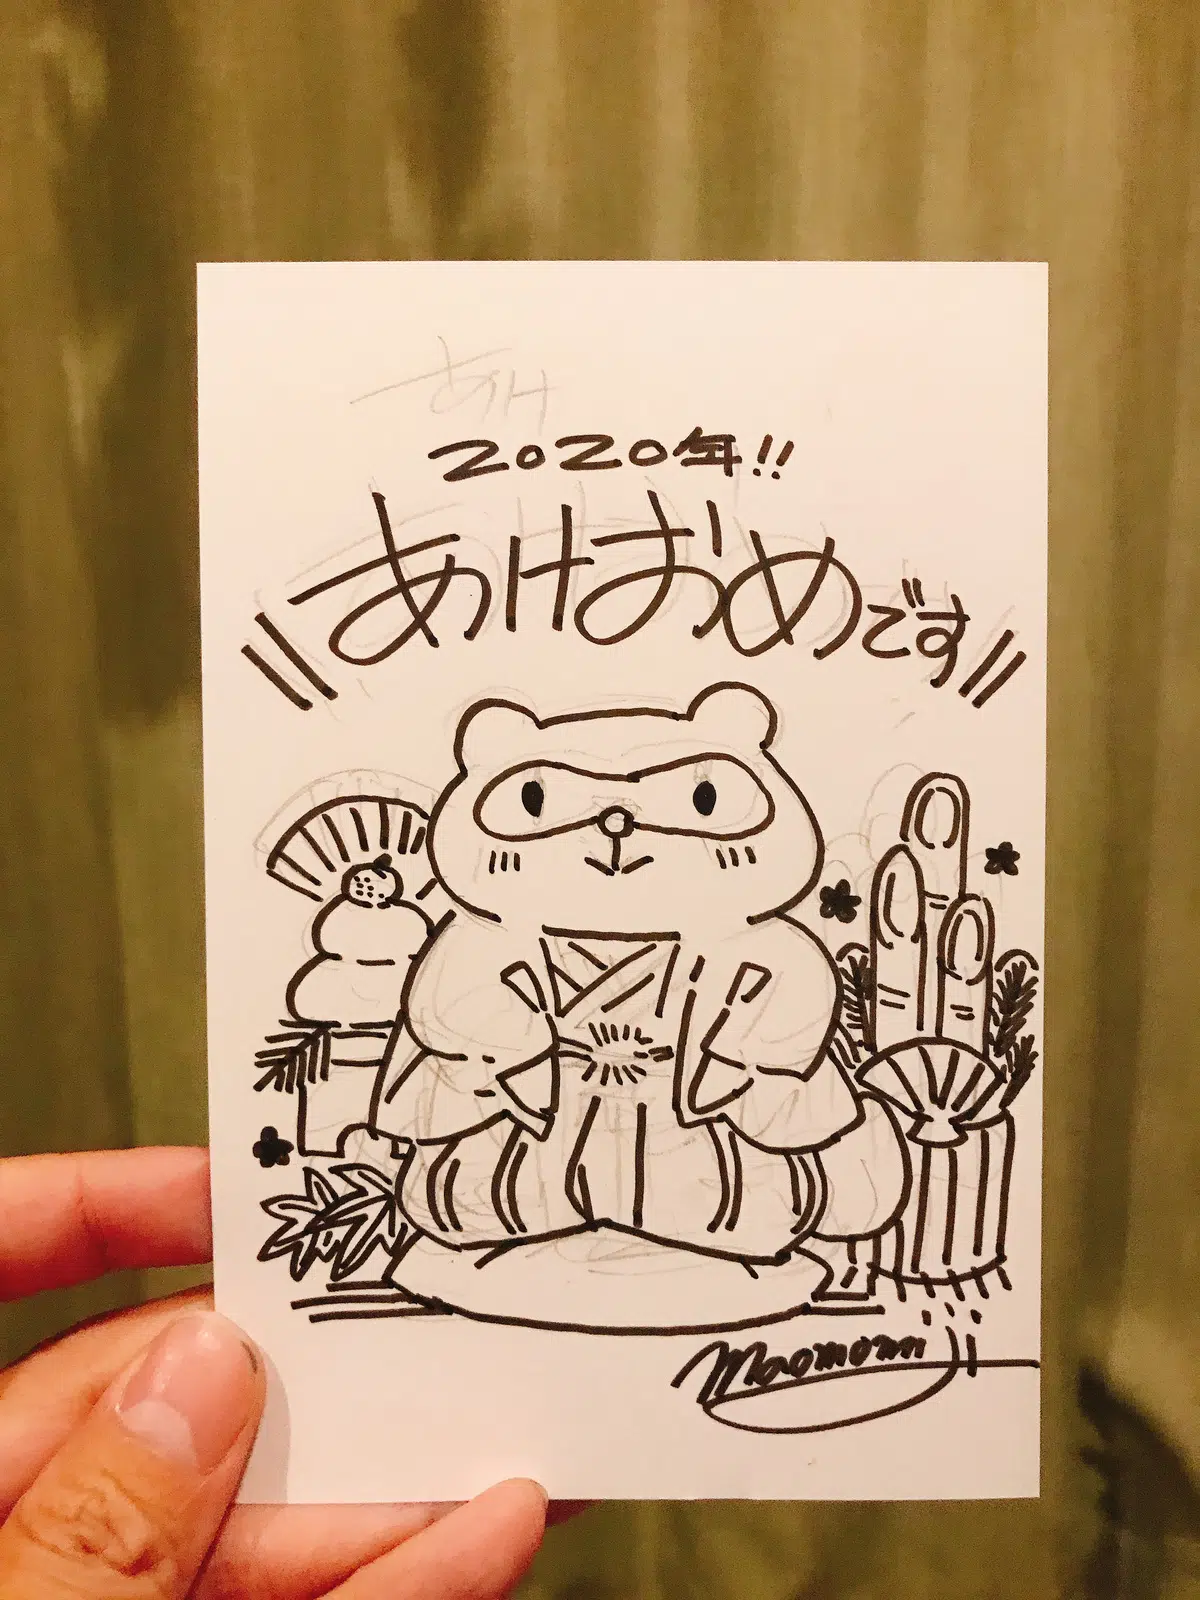 あけ
2020年!!
あけおめです
maomomi